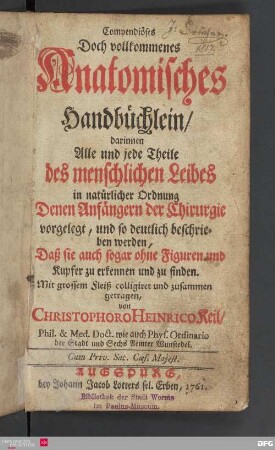 Compendiöses
Doch vollkommenes
Anatomisches
Handbüchlein/
darinnen
Alle und jede Theile
des menschlichen Leibes
in natürlicher Ordnung
Denen Anfängern der Chirurgie
vorgelegt, und so deutlich beschrie-
ben werden,
Daß sie auch sogar ohne Figuren und
Kupfer zu erkennen und zu finden.
Mit grossem Fleiß colligiret und zusammen
getragen,
von
CHRISTOPHORO HEINRICO Keil,
Phil. & Med. Doct. wie auch Phys. Ordinario
der Stadt und Sechs Aemter Wunsiedel.
Cum Priv. Sac. Cæs. Majest.
AUGSPURG,
bey Johann Jacob Lotters sel. Erben, 1761.
Bibliothek der Stadt Worms
im Paulus-Museum.
DFG